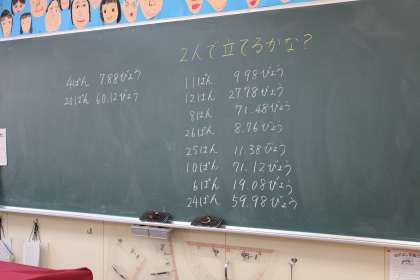 2人で立てるかな?
4ばん 7.88びょう
23ばん 60.12びょう
11ばん 9.98びょう
12ばん 27.78びょう
8ばん 71.48びょう
26ばん 8.76びょう
25ばん 11.38びょう
10ばん 71.12びょう
6ばん 19.08びょう
24ばん 59.98びょう